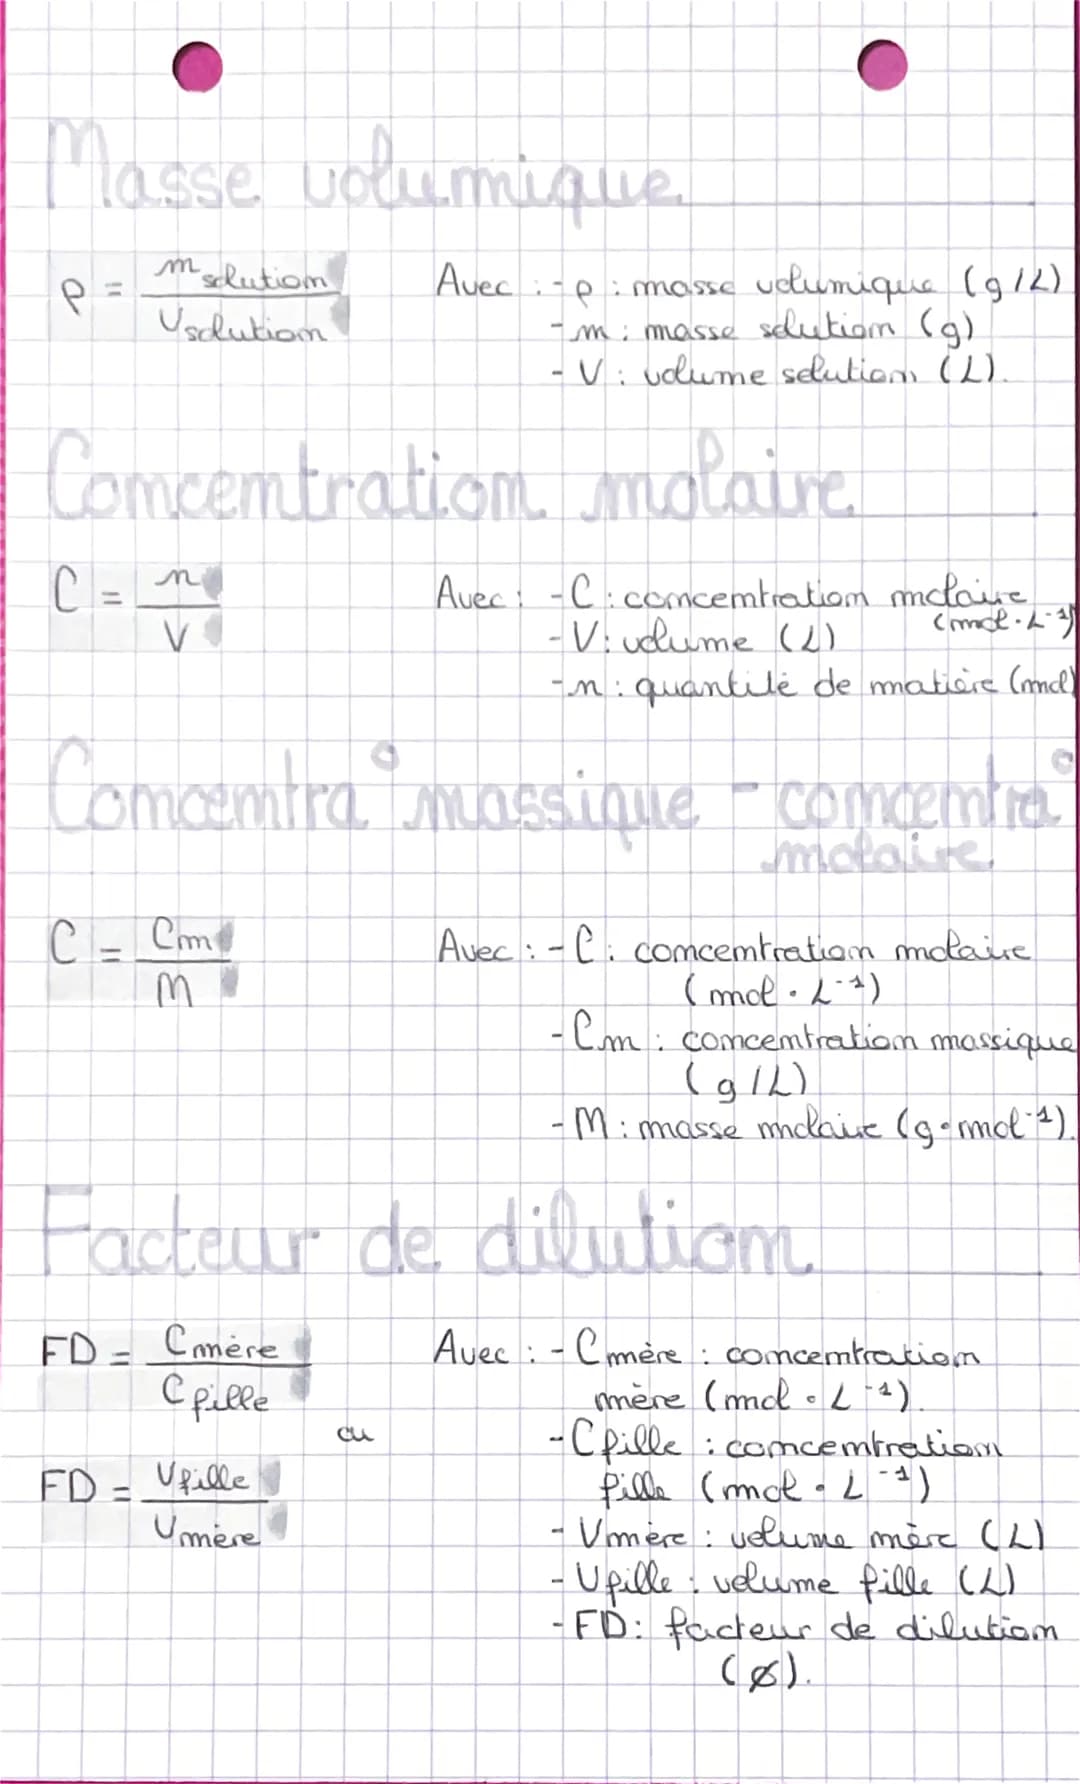 Masse volumique
ρ = m solution / V solution
Avec : - ρ : masse volumique (g/L)
- m : masse solution (g)
- V : volume solution (L).
Concentration molaire
C = n / V
Avec : - C : concentration molaire (mol·L⁻¹)
- V : volume (L)
- n : quantité de matière (mol)
Concentra° massique - concentra°
molaire
C = Cm / M
Avec : - C : concentration molaire
(mol·L⁻¹)
- Cm : concentration massique
(g/L)
- M : masse molaire (g·mol⁻¹).
Facteur de dilution
FD = Cmère / Cfille
ou
FD = Vfille / Vmère
Avec : - Cmère : concentration
mère (mol·L⁻¹).
- Cfille : concentration
fille (mol·L⁻¹)
- Vmère : volume mère (L)
- Vfille : volume fille (L)
- FD : facteur de dilution
(∅).